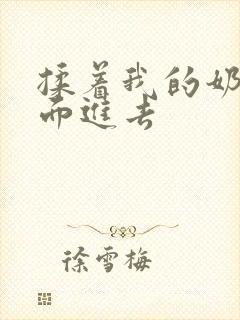 揉着我的奶
而进去
徐雪梅